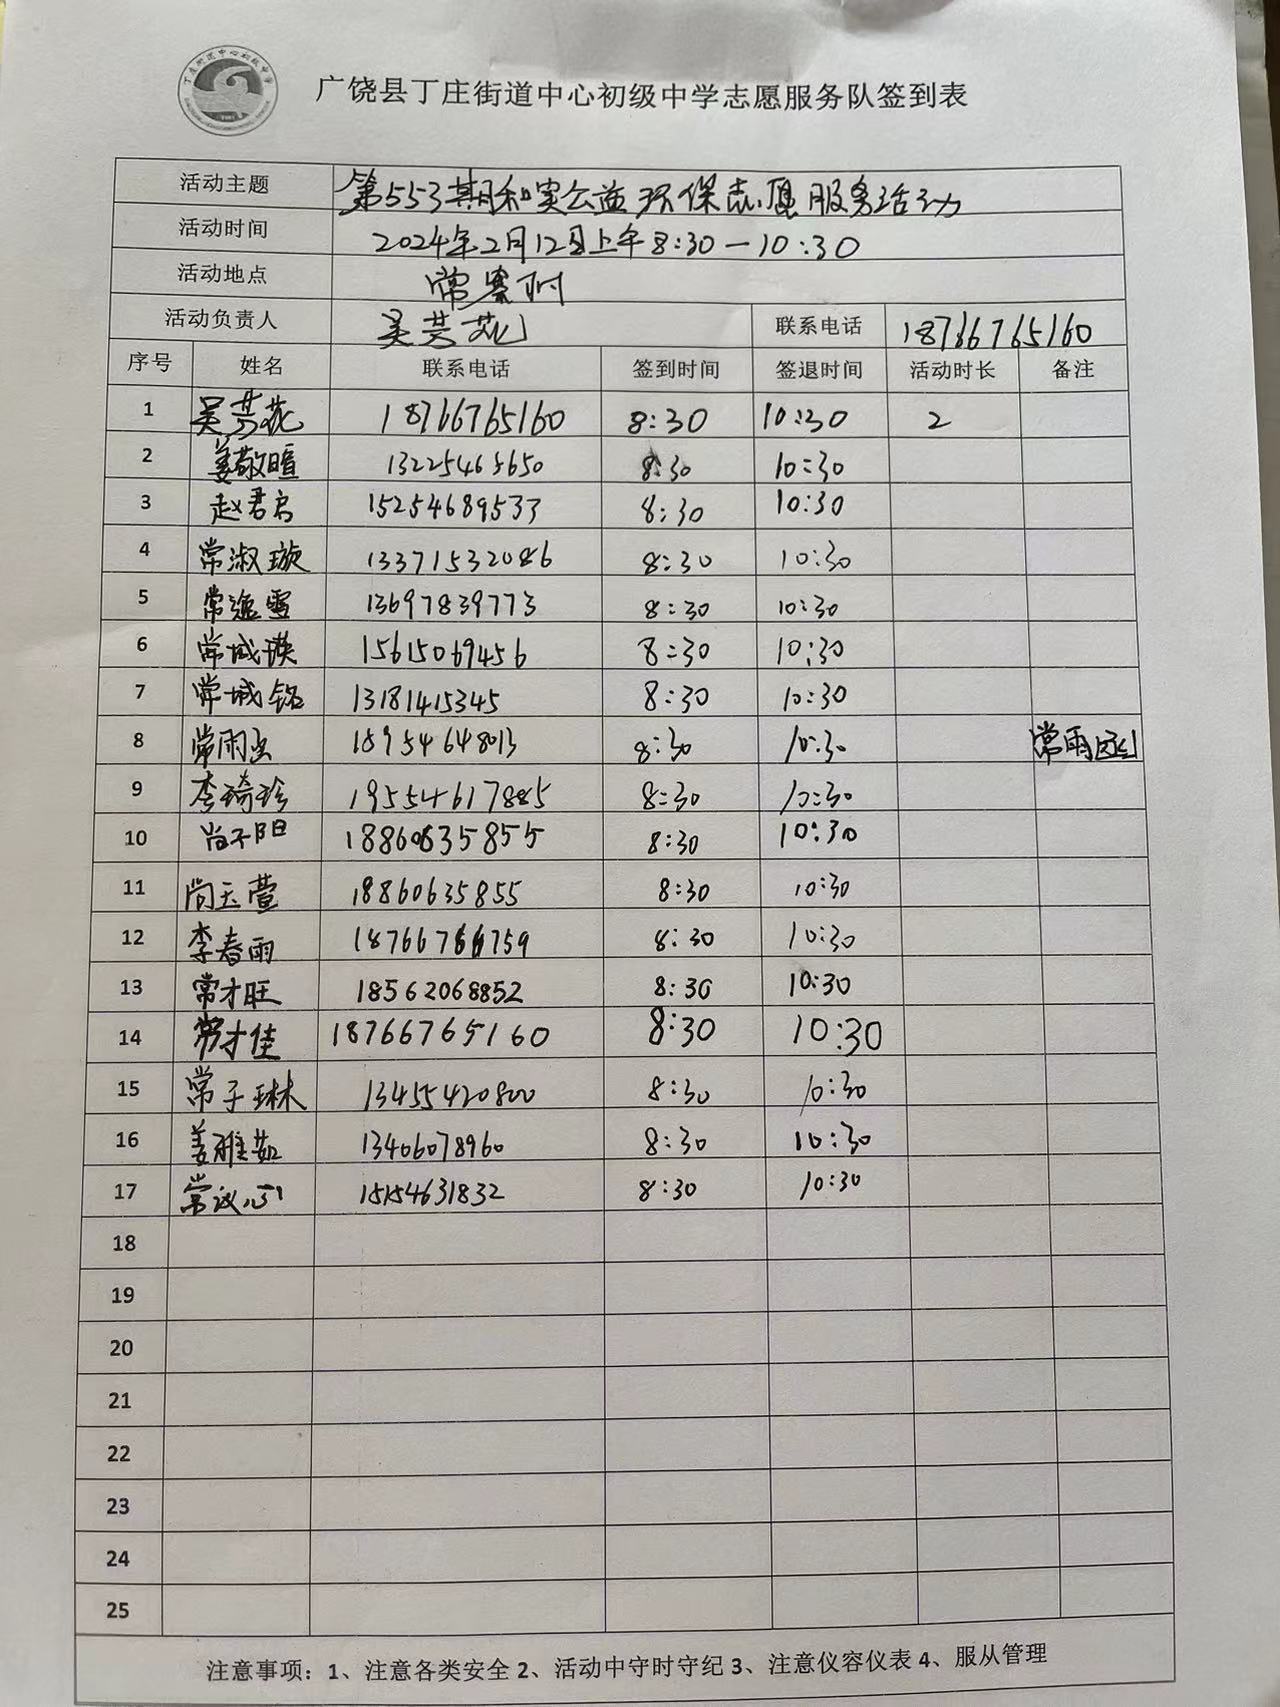 广饶县丁庄街道中心初级中学志愿服务队签到表
活动主题 第553期和实公益环保志愿服务活动
活动时间 2024年2月12日上午8:30—10:30
活动地点 常寨村
活动负责人 吴芸花 联系电话 18766765160
序号 姓名 联系电话 签到时间 签退时间 活动时长 备注
1 吴芸花 18766765160 8:30 10:30 2
2 姜敬暄 13225465650 8:30 10:30
3 赵君启 15254689533 8:30 10:30
4 常淑璇 13371532086 8:30 10:30
5 常逸雪 13697839773 8:30 10:30
6 常城瑛 15615069456 8:30 10:30
7 常城铭 13181415345 8:30 10:30
8 常雨函 18954648013 8:30 10:30 常雨函
9 李琦珍 19554617885 8:30 10:30
10 尚子阳 18860635855 8:30 10:30
11 尚玉萱 18860635855 8:30 10:30
12 李春雨 18766766759 8:30 10:30
13 常才旺 18562068852 8:30 10:30
14 常才佳 18766765160 8:30 10:30
15 常子琳 13455420800 8:30 10:30
16 姜雅茹 13406078960 8:30 10:30
17 常议心 15154631832 8:30 10:30
18
19
20
21
22
23
24
25
注意事项：1、注意各类安全 2、活动中守时守纪 3、注意仪容仪表 4、服从管理